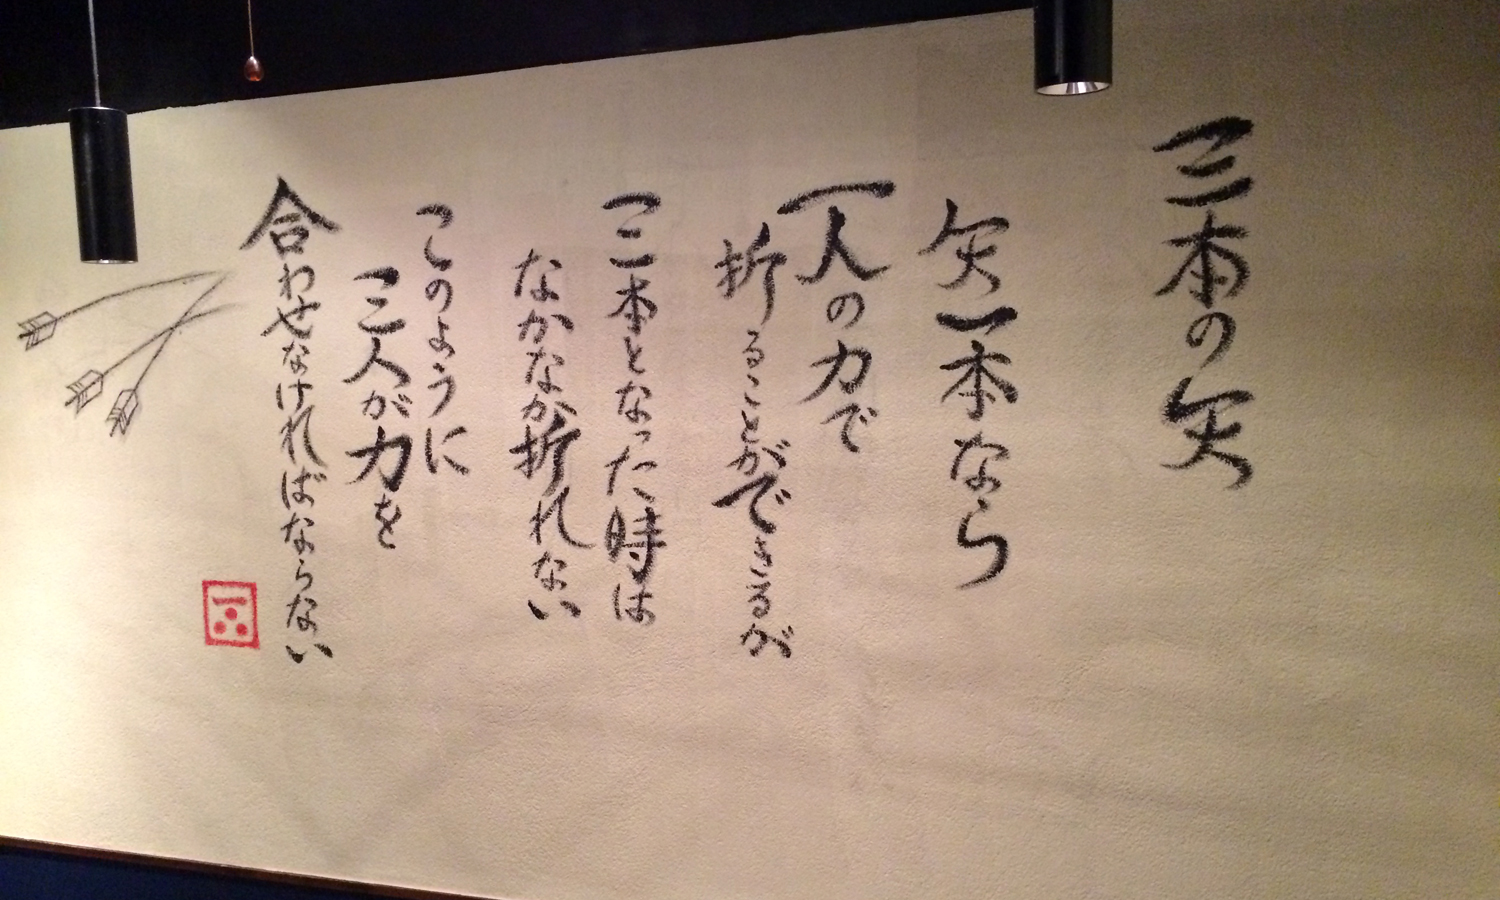 三本の矢
矢一本なら
一人の力で
折ることができるが
三本となった時は
なかなか折れない
このように
三人が力を
合わせなければならない